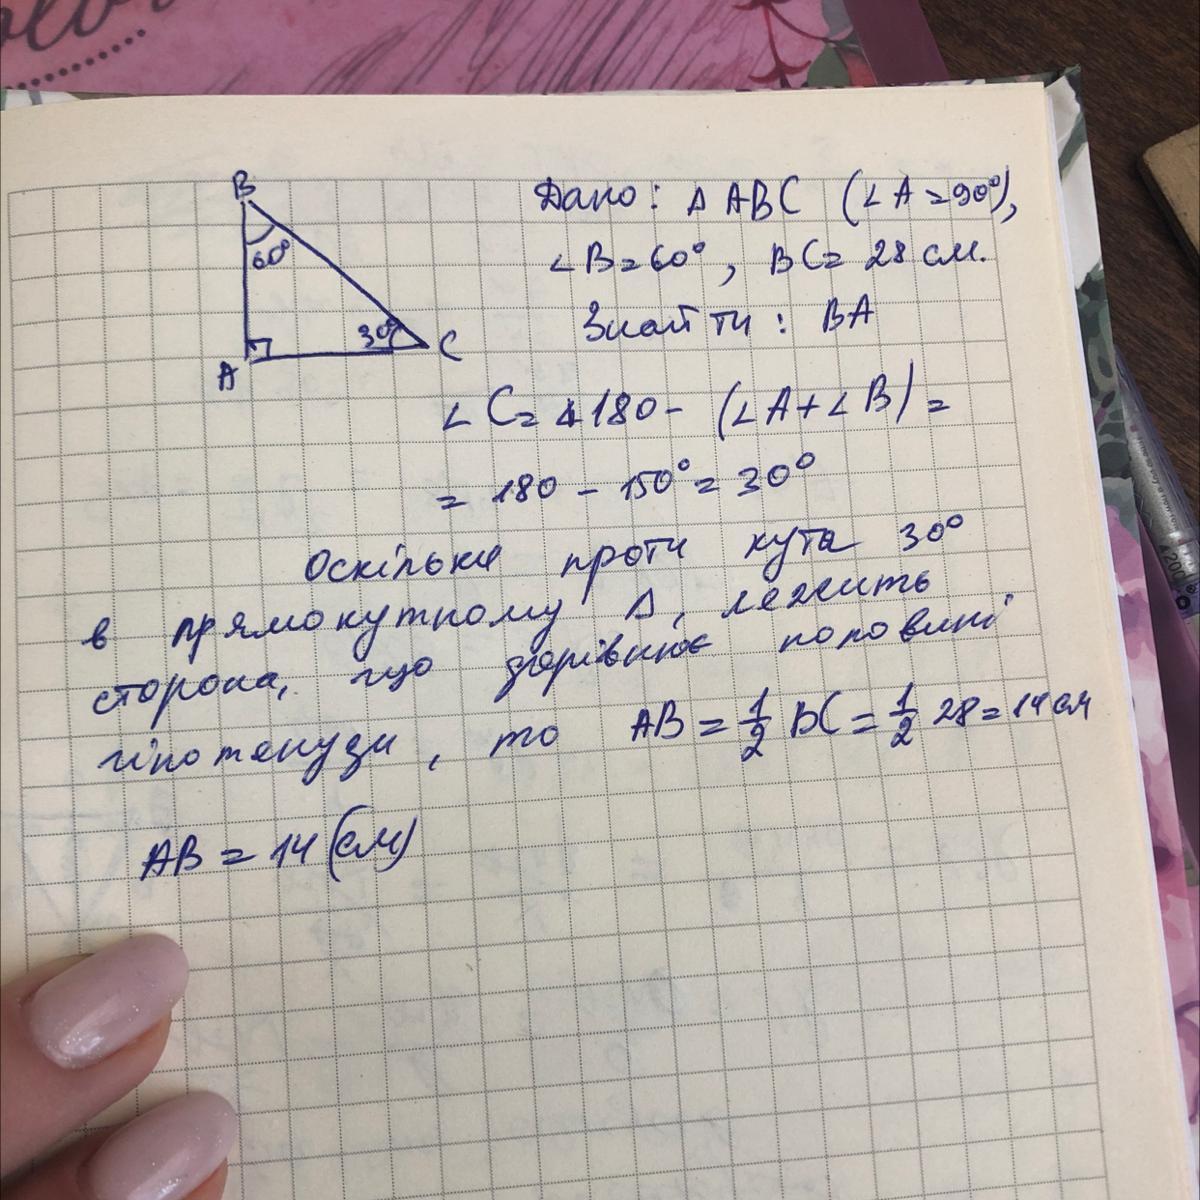 B
60°
30°
A
C
Дано: Δ ABC (∠A=90°),
∠B=60°, BC= 28 см.
Знайти: BA
∠C= 180- (∠A+∠B)=
= 180 - 150°= 30°
Оскільки проти кута 30°
в прямокутному Δ, лежить
сторона, що дорівнює половині
гіпотенузи, то AB = 1/2 BC = 1/2 28 = 14 см
AB = 14 (см)